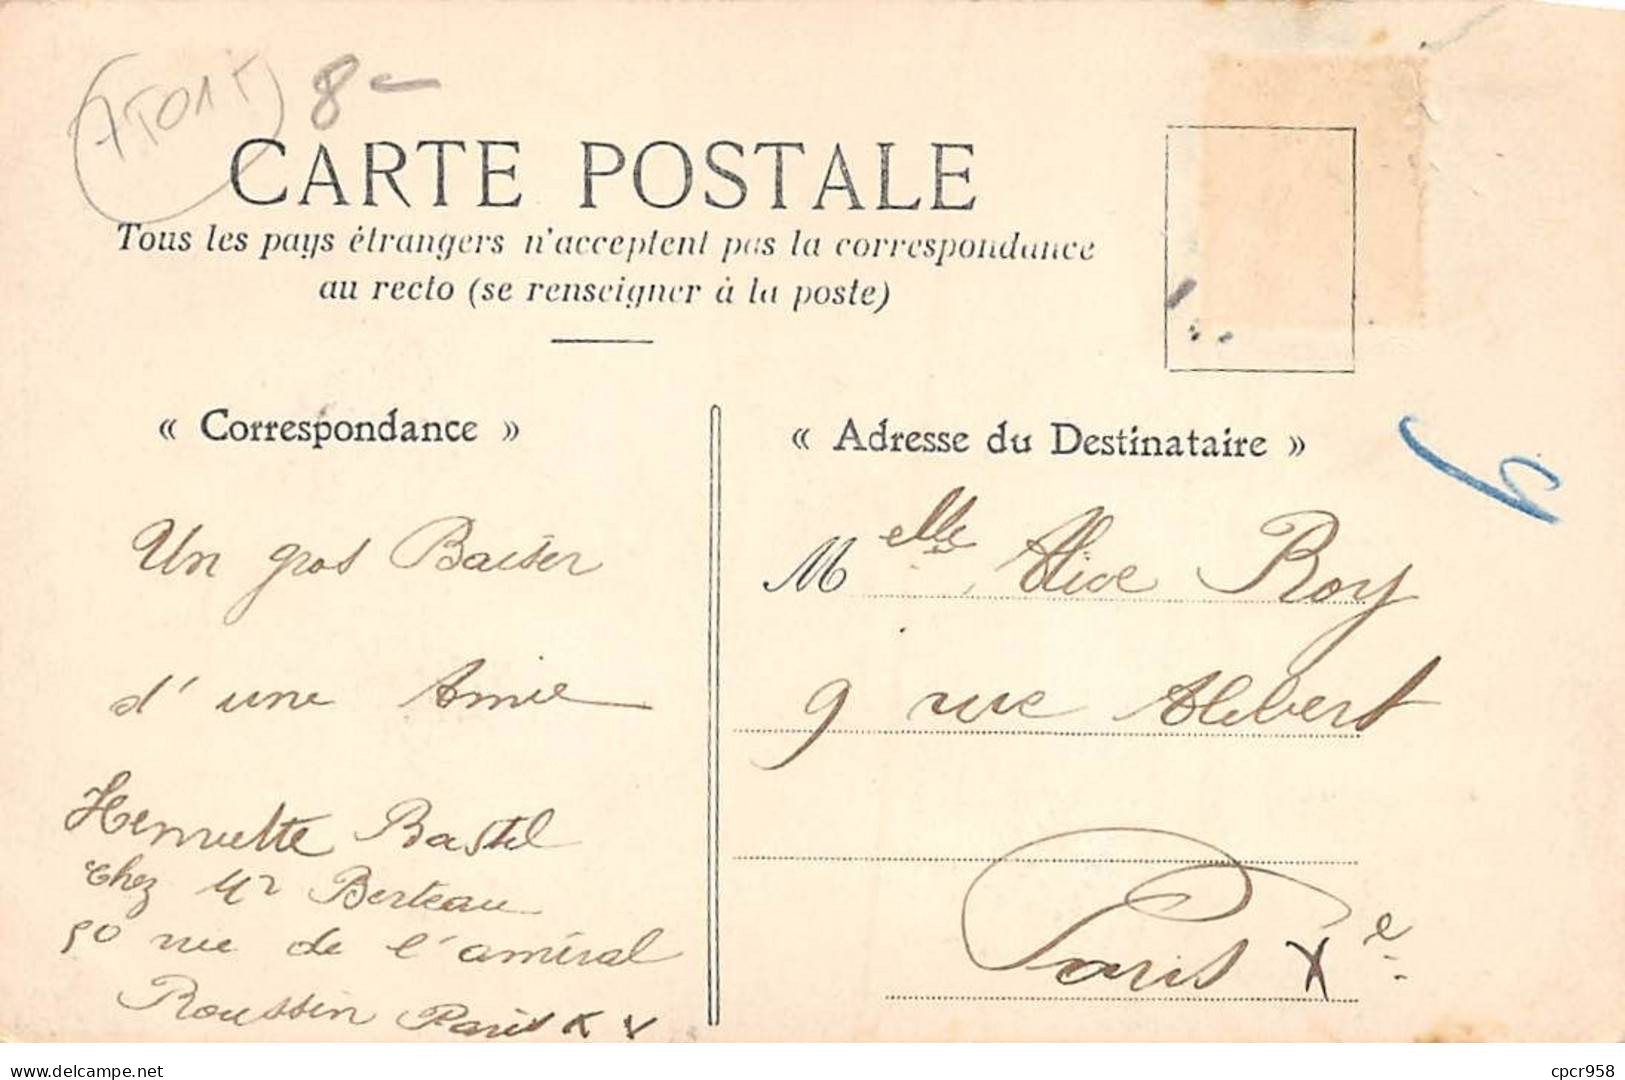 75015 8-
CARTE POSTALE
Tous les pays étrangers n'acceptent pas la correspondance
au recto (se renseigner à la poste)
« Correspondance »
« Adresse du Destinataire »
Un gros Baiser
d'une Amie
Henriette Bastel
Chez Mr Berteau
50 rue de l'amiral
Roussin Paris XV
Melle Alice Roy
9 rue Alibert
Paris Xe
delcampe.net
cpcr958